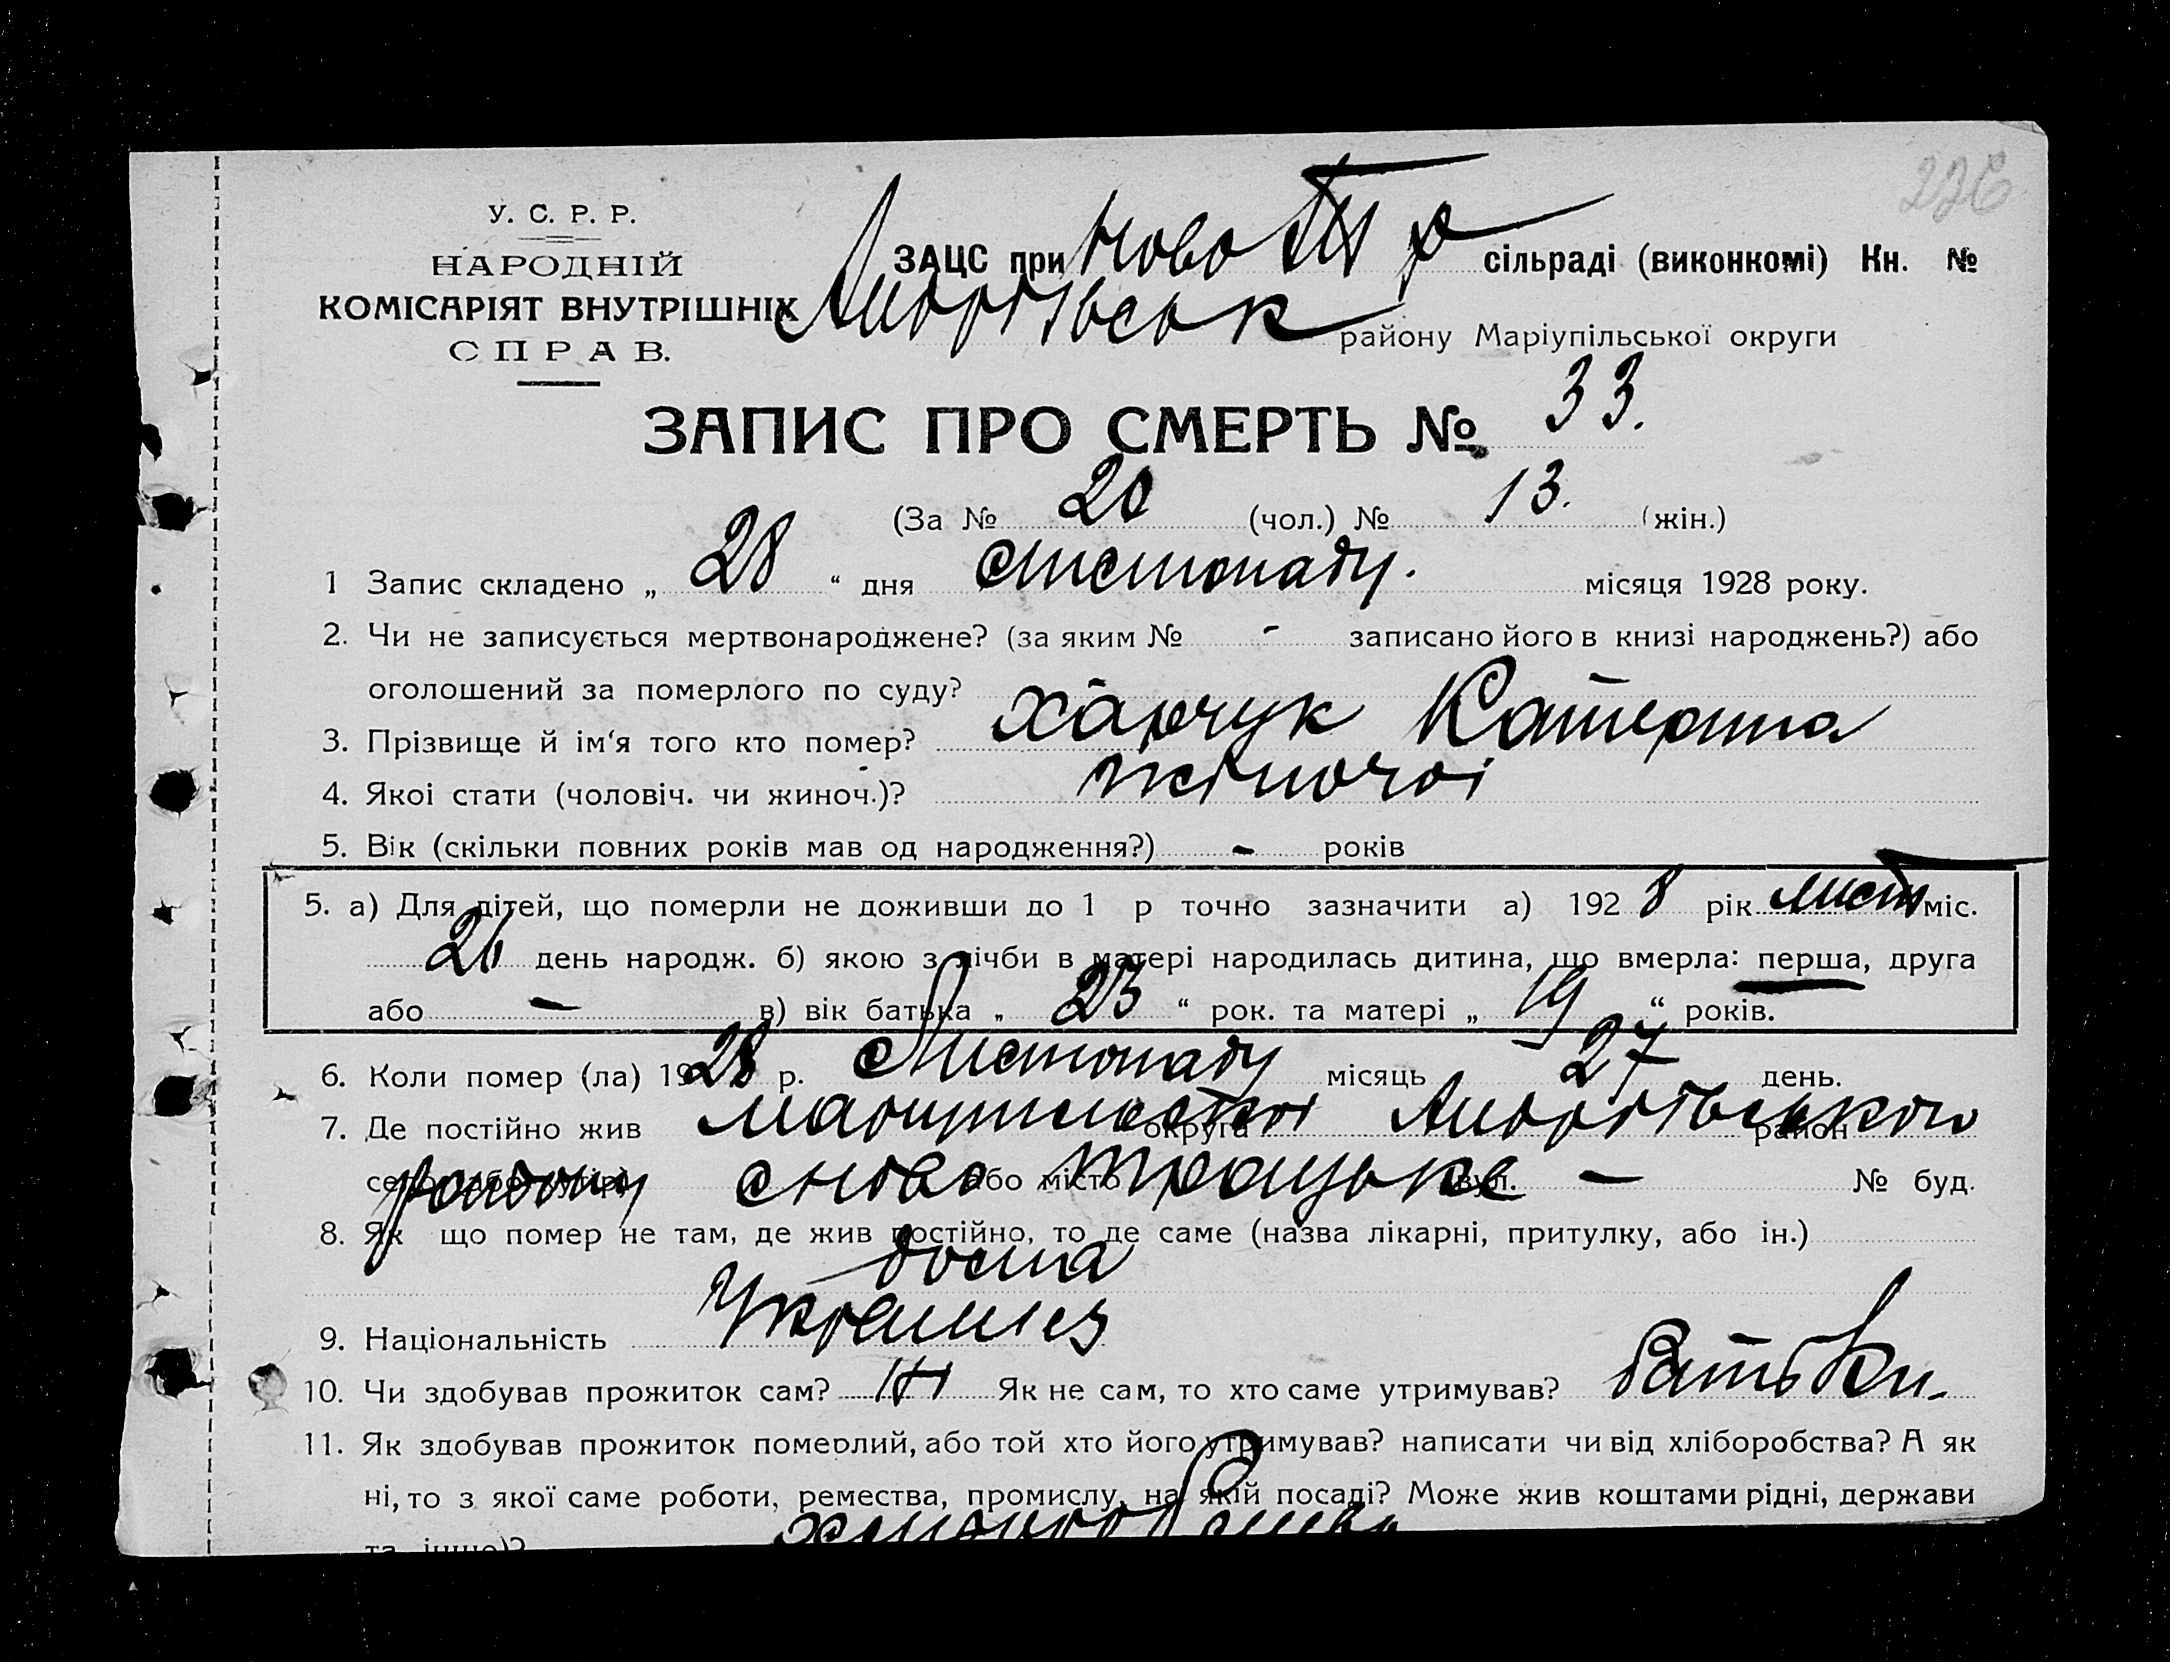 226
У. С. Р. Р.
НАРОДНІЙ
КОМІСАРІЯТ ВНУТРІШНІХ
СПРАВ.
ЗАЦС при Ново Тр сільраді (виконкомі) Кн. №
Андріївськ району Маріупільської округи
ЗАПИС ПРО СМЕРТЬ № 33.
(За № 20 (чол.) № 13. (жін.)
1 Запис складено „ 28 “ дня Листопаду. місяця 1928 року.
2. Чи не записується мертвонароджене? (за яким № - записано його в книзі народжень?) або
оголошений за померлого по суду?
3. Прізвище й ім‘я того кто помер? Харчук Катерина
4. Якоі стати (чоловіч. чи жиноч.)? жіночоі
5. Вік (скільки повних років мав од народження?) - років
5. а) Для дітей, що померли не доживши до 1 р точно зазначити а) 192 8 рік лист міс.
26 день народж. б) якою з лічби в матері народилась дитина, що вмерла: перша, друга
або — в) вік батька „ 23 “ рок. та матері „ 19 “ років.
6. Коли помер (ла) 19 28 р. Листопаду місяць 27 день.
7. Де постійно жив округа Андріівського район
район або місто Троцьке вул. — № буд.
8. Як що помер не там, де жив постійно, то де саме (назва лікарні, притулку, або ін.)
дома
9. Національність Украінец
10. Чи здобував прожиток сам? Ні Як не сам, то хто саме утримував? батьки-
11. Як здобував прожиток померлий, або той хто його утримував? написати чи від хліборобства? А як
ні, то з якої саме роботи, ремества, промислу, на якій посаді? Може жив коштами рідні, держави
та інше)?